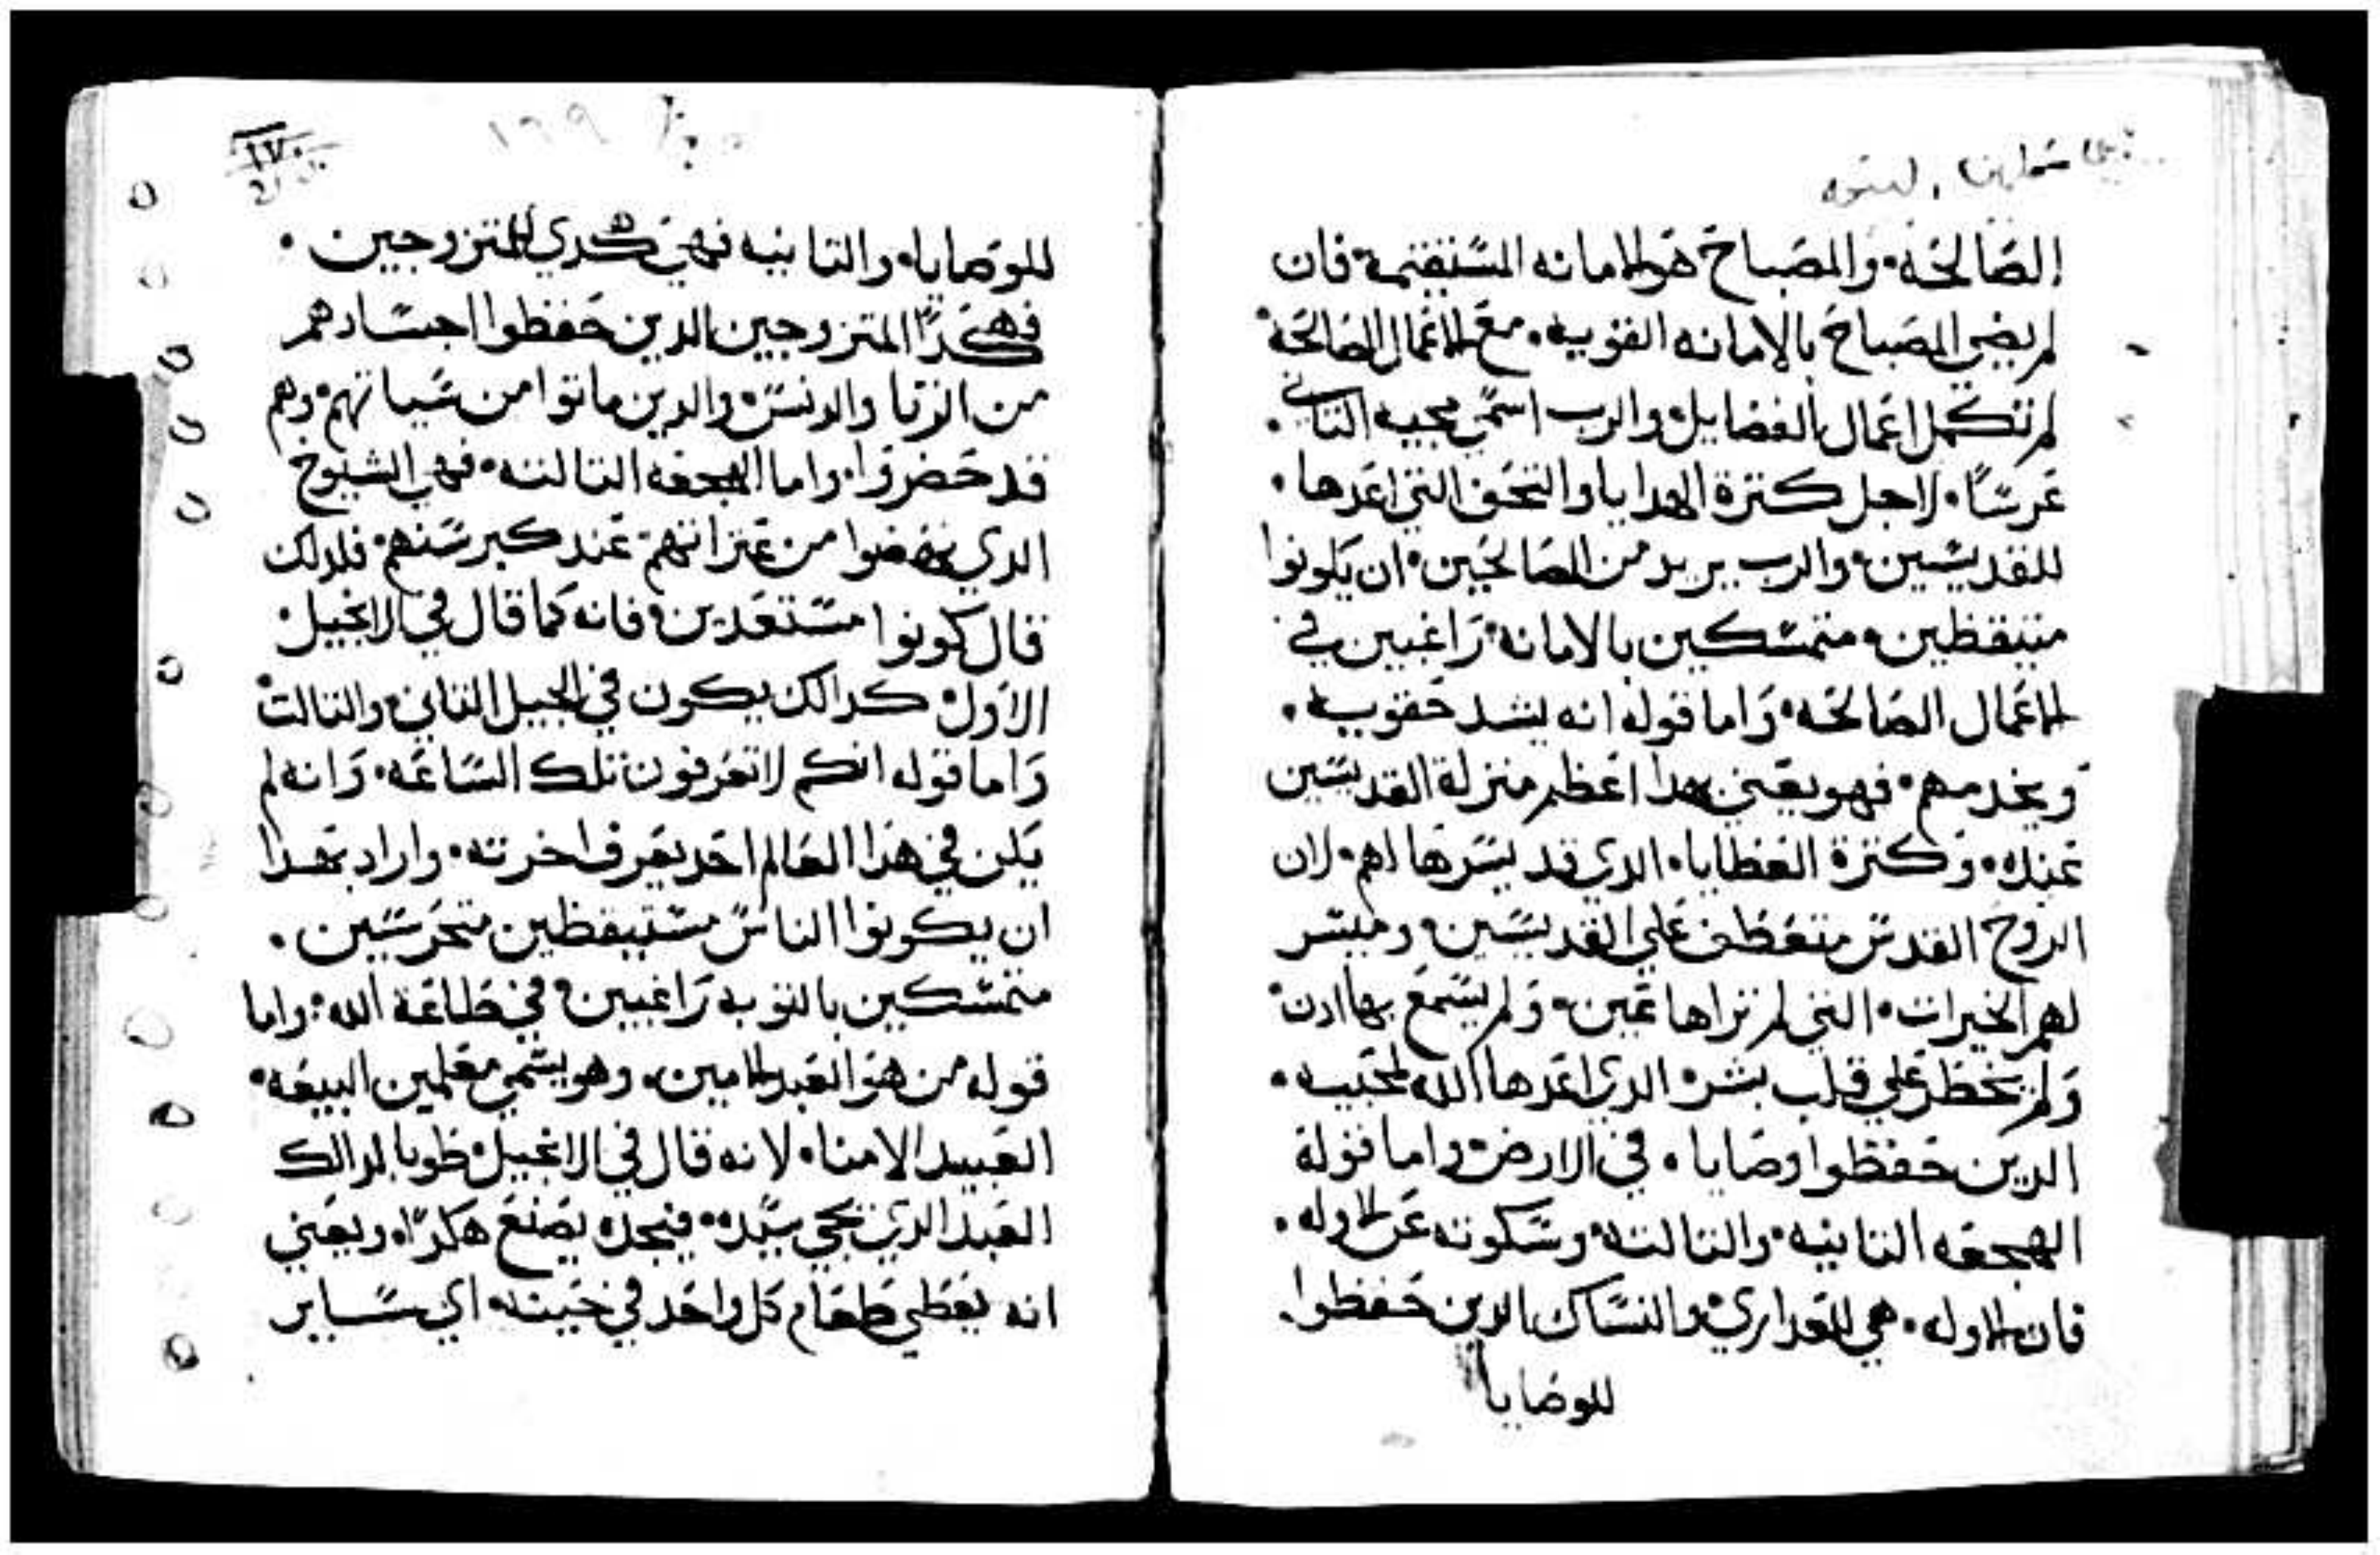 الصالحه والمصباح هو الامانه المستقيمة فان
لم يضي المصباح بالامانه القويه مع الاعمال الصالحه
لم تكمل اعمال الفضايل والرب اسمي مجيه التاني
عرسا لاجل كترة الهدايا والتحف التي اعدها
للقديسين والرب يريد من الصالحين ان يكونوا
متيقظين متمسكين بالامانه راغبين في
الاعمال الصالحه واما قوله انه يشد حقويه
ويخدمهم فهو يعني بهدا اعظم منزلة القديسين
عنده وكترة العطايا الدي قد يسرها لهم لان
الروح القدس متعطف علي القديسين ومبشر
لهم الخيرات التي لم تراها عين ولم يسمع بها ادن
ولم يخطر علي قلب بشر الدي اعدها الله لمحبيه
الدين حفظوا وصاياه في الارض واما قولة
الهجعه التانيه والتالته وسكوته عن الاوله
فان الاوله هي للعداري والنساك الدين حفظوا
للوصايا
١٦٩
١٧٠
للوصاياه والتانيه فهي للمتزوجين
فهكدا المتزوجين الدين حفظوا اجسادهم
من الزنا والدنس والدين ماتوا من شيانهم وهم
قد حضروا واما الهجعه التالته فهي الشيوخ
الدي نهضوا من عتراتهم عند كبر سنهم فلدلك
قال كونوا مستعدين فانه كما قال في الانجيل
الاول كدالك يكون في الجيل التاني والتالت
واما قوله انكم لا تعرفون تلك الساعه وانه لم
يكن في هدا العالم احد يعرف اخرته واراد بهدا
ان يكونوا الناس مستيقظين متحرسين
متمسكين بالتوبه راغبين في طاعة الله واما
قوله من هو العبد الامين وهو يسمي معلمين البيعه
العبيد الامناه لانه قال في الانجيل طوبا لدالك
العبد الدي يجي سيده فيجده يصنع هكدا ويعني
انه يعطي طعام كل واحد في حينه اي ساير